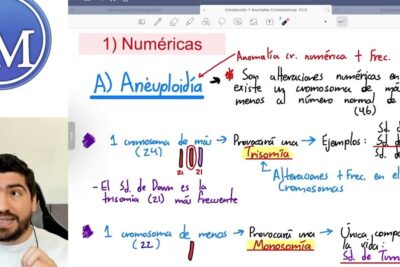 M
Introducción Y Anomalías Cromosómicas V2.0
1) Numéricas
Anomalía cr. numérica + Frec.
A) Anèuploidía
Son alteraciones numéricas en
existe un cromosoma de más
menos al número normal de
(46)
1 cromosoma de más
(24)
Provocará una
Trisomía
Ejemplos:
21
21
Alteraciones + Frec. en el
Cromosomas
- El Sd. de Down es la
trisomía (21) más frecuente
1 cromosoma de menos
(22)
Provocará una
Monosomía
Única compa
la vida:
Sd. de Turn